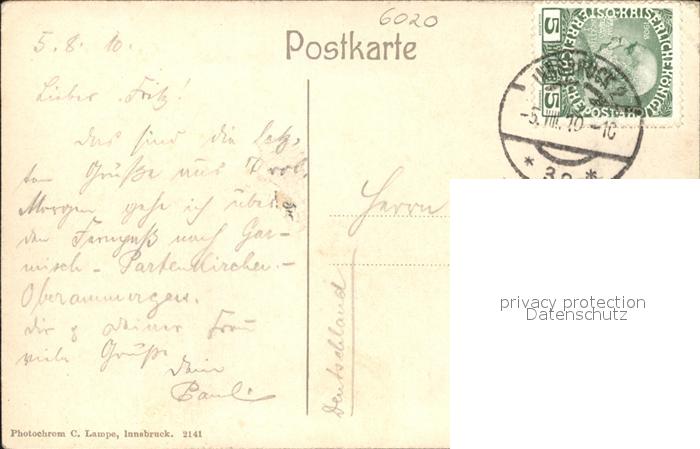 6020
5.8.10.
Postkarte
Lieber Fritz!
Das sind die letz-
ten Grüße aus Tirol.
Morgen gehe ich über
den Fernpaß nach Gar-
misch-Partenkirchen-
Oberammergau.
Dir & Deiner Frau
viele Grüße
Dein
Paul.
Photochrom C. Lampe, Innsbruck. 2141
Herrn
Deutschland
5 5
INNSBRUCK 2
-5.VIII.10-10
* 3c *
privacy protection
Datenschutz